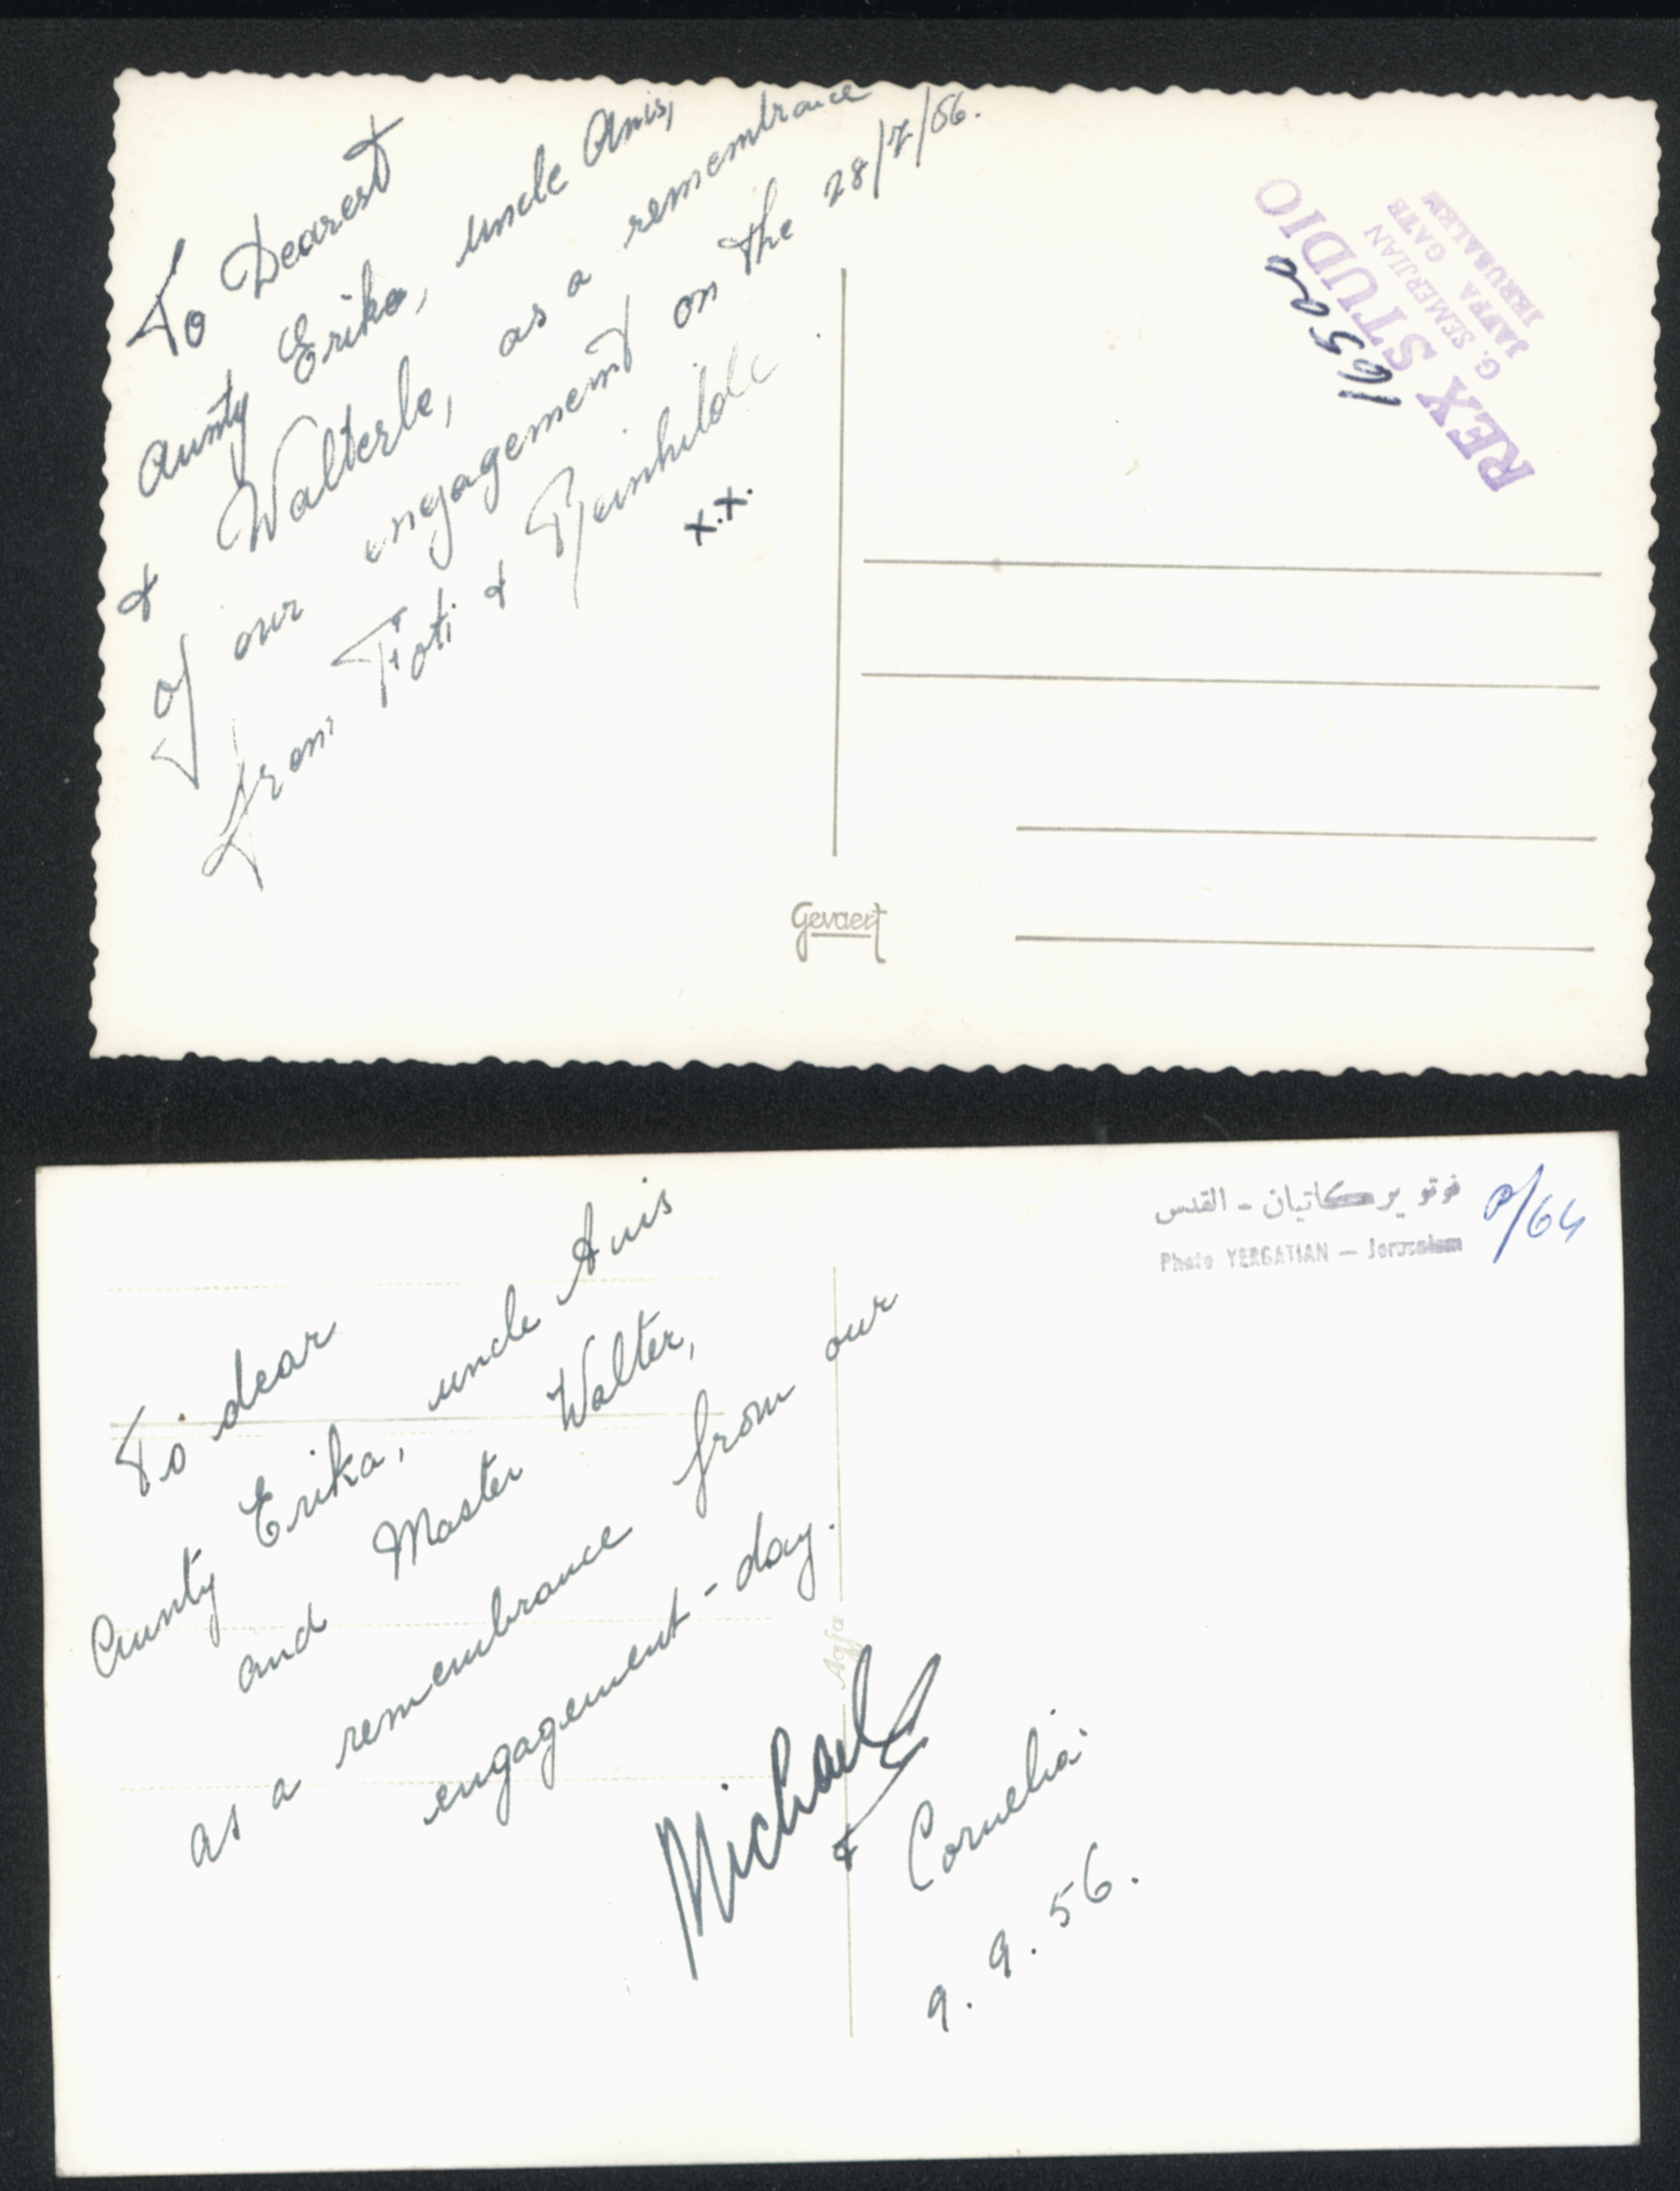 To Dearest
Aunty Erika, uncle Anis,
& Walterle, as a remembrance
of our engagement on the 28/7/56.
from Foti & Reinhilde
x.x.
REX STUDIO
G. SEMERJIAN
JAFFA GATE
JERUSALEM
Gevaert
فوتو يركاتيان - القدس
Photo YERGATIAN — Jerusalem
To dear
Aunty Erika, uncle Anis
and Master Walter,
as a remembrance from our
engagement-day.
Agfa
Michael
& Cornelia.
9.9.56.